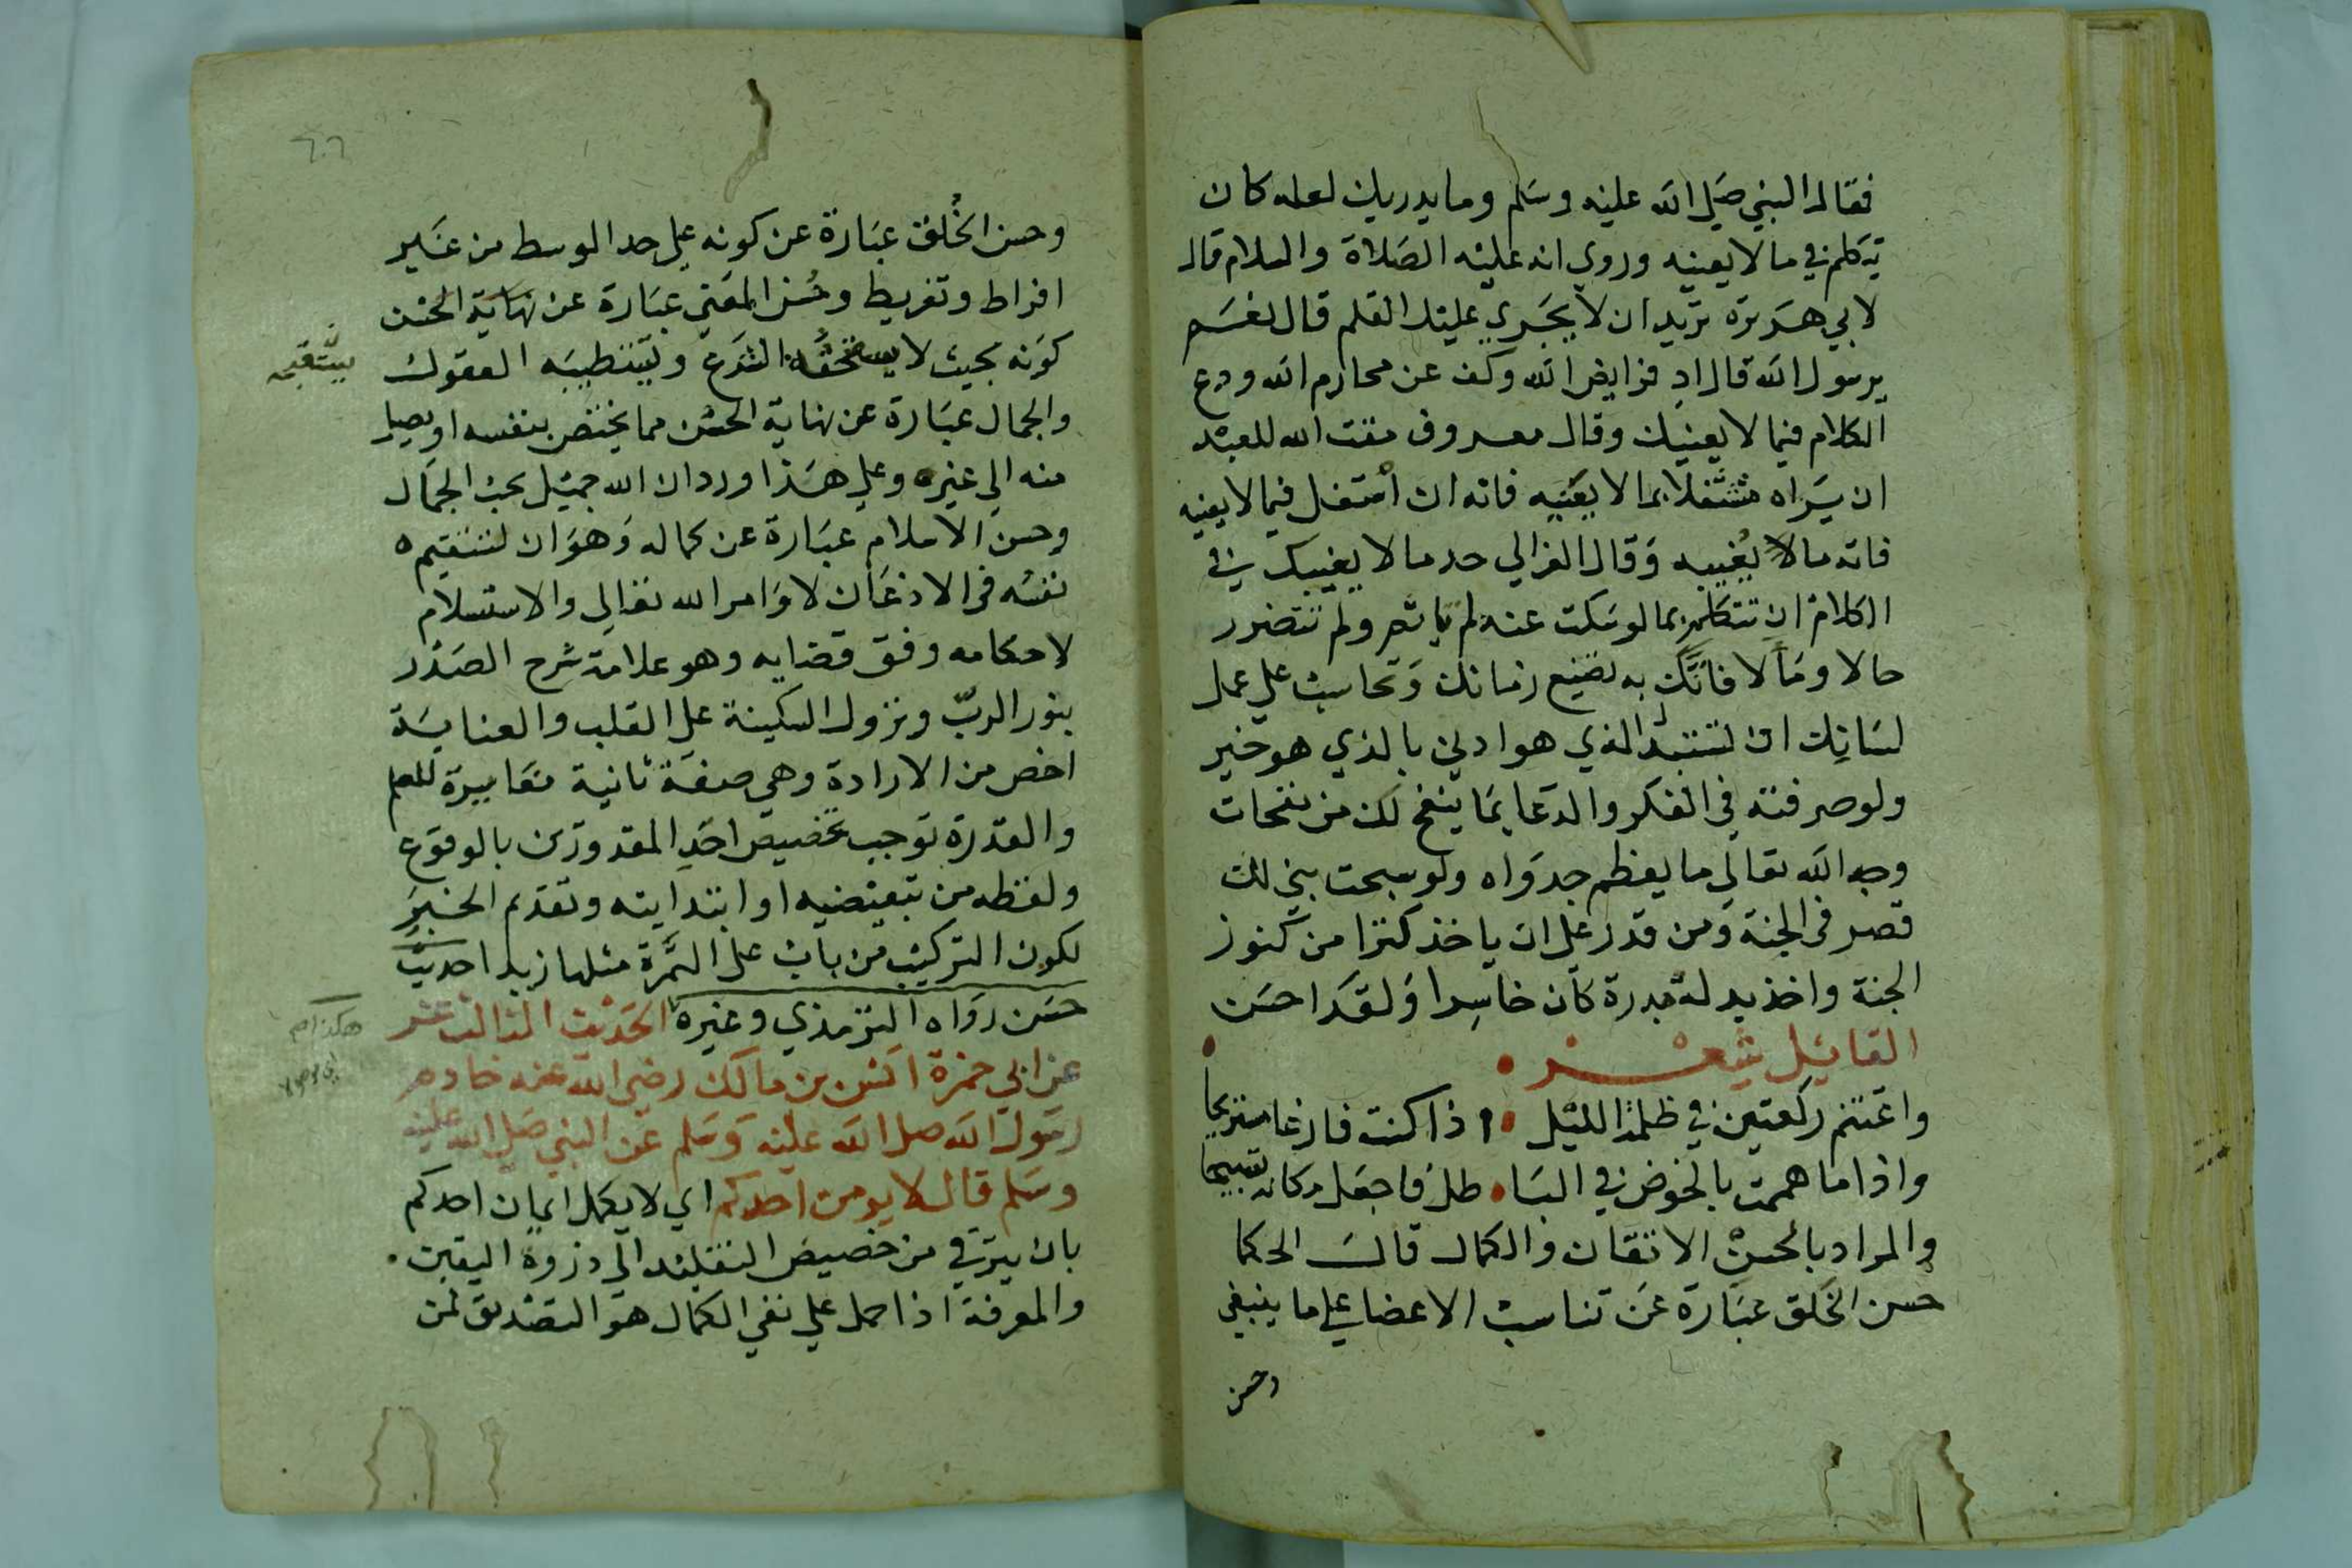 فقال النبي صلى الله عليه وسلم وما يدريك لعله كان
يتكلم في ما لا يعنيه وروي انه عليه الصلاة والسلام قال
لابي هريرة تريد ان لا يجري عليك القلم قال نعم
يرسول الله قال اد فرايض الله وكف عن محارم الله ودع
الكلام فيما لا يعنيك وقال معروف مقت الله للعبد
ان يراه مشتغلا بما لا يعنيه فانه ان اشتغل فيما لا يعنيه
فاته ما لا يغنيه وقال الغزالي حد ما لا يعنيك في
الكلام ان تتكلم بما لو سكت عنه لم تاثم ولم تتضرر
حالا ومآلا فانك به تضيع زمانك وتحاسب على عمل
لسانك اذ تستبدل الذي هو ادنى بالذي هو خير
ولو صرفته في الفكر والدعا بما ينفتح لك من نفحات
وجه الله تعالى ما يعظم جدواه ولو سبحت بني لك
قصر في الجنة ومن قدر على ان ياخذ كنزا من كنوز
الجنة واخذ بدله مدرة كان خاسرا ولقد احسن
القايل شعر
واغتنم ركعتين في ظلمة الليل اذا كنت فارغا مستريحا
واذا ما هممت بالخوض في الباطل فاجعل مكانه تسبيحا
والمراد بالحسن الاتقان والكمال قالت الحكما
حسن الخلق عبارة عن تناسب الاعضا على ما ينبغي
وحسن
٢٠٢
وحسن الخلق عبارة عن كونه على حد الوسط من غير
افراط وتفريط وحسن المعنى عبارة عن نهاية الحسن
كونه بحيث لا الشرع ويستطيبه العقول
يستقبحه
والجمال عبارة عن نهاية الحسن مما يختص بنفسه او يصل
منه الى غيره وعلى هذا ورد ان الله جميل يحب الجمال
وحسن الاسلام عبارة عن كماله وهو ان تستقيم
نفسه في الاذعان لاوامر الله تعالى والاستسلام
لاحكامه وفق قضايه وهو علامة شرح الصدر
بنور الرب ونزول السكينة على القلب والعناية
اخص من الارادة وهي صفة ثانية مغايرة للعلم
والقدرة توجب تخصيص احد المقدورين بالوقوع
ولفظه من تبعيضيه او ابتدايته وتقدم الخبر
لكون التركيب من باب على التمرة مثلها زبدا حديث
حسن رواه الترمذي وغيره الحديث الثالث عشر
هكذا
عن ابي حمزة انس بن مالك رضي الله عنه خادم
رسول الله صلى الله عليه وسلم عن النبي صلى الله عليه
وسلم قال لا يومن احدكم اي لا يكمل ايمان احدكم
بان يترقي من حضيض التقليد الى ذروة اليقين
والمعرفة اذا حمل على نفي الكمال هو التصديق لمن